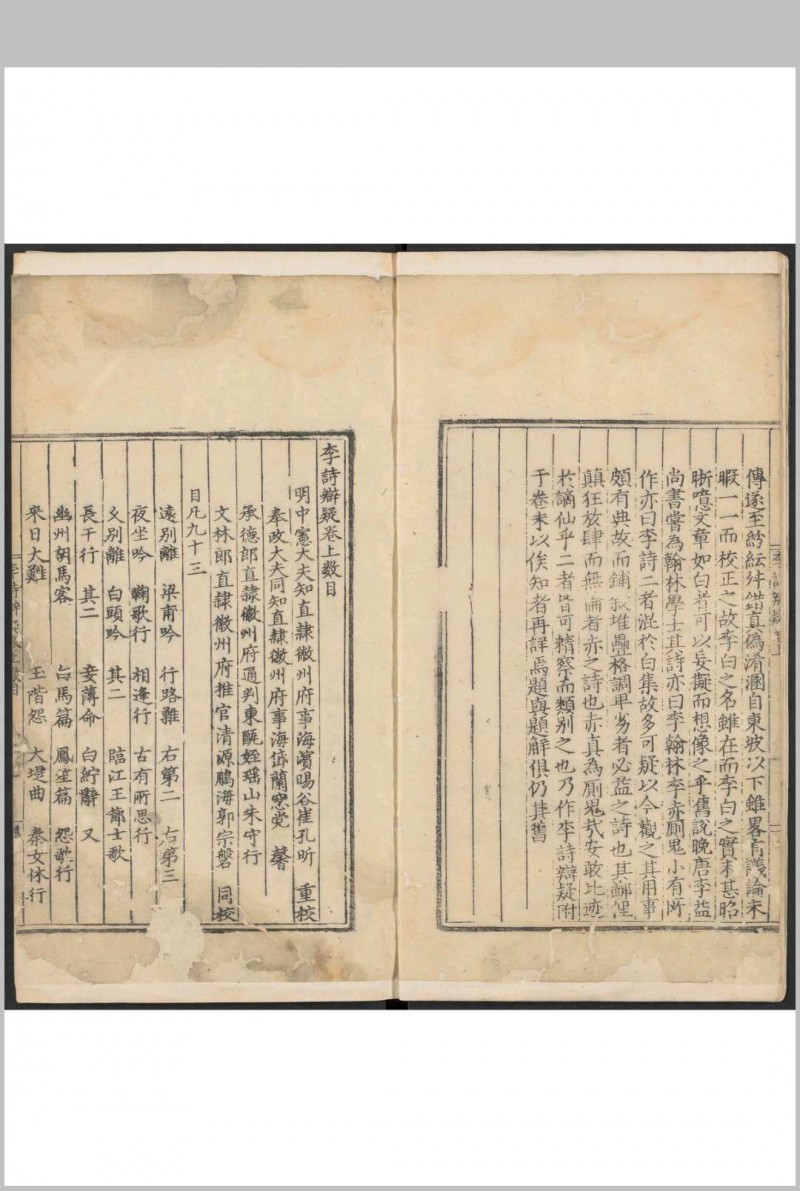 傳遂至紛紜舛錯真僞淆溷自東坡以下雖畧有議論未
暇一一而校正之故李白之名雖在而李白之實未甚昭
晰噫文章如白者可以妄擬而想像之乎舊說晚唐李益
尚書嘗為翰林學士其詩亦曰李翰林李赤厠鬼小有所
作亦曰李詩二者混於白集故多可疑以今觀之其用事
頗有典故而鋪叙堆疊格調卑劣者必益之詩也其鄙俚
顛狂放肆而無倫者赤之詩也赤真為厠鬼哉安敢比迹
於謫仙乎二者皆可精察而類別之也乃作李詩辯疑附
于卷末以俟知者再詳焉題與題解俱仍其舊
李詩辯疑卷上數目
明中憲大夫知直隸徽州府事海濱暘谷崔孔昕 重校
奉政大夫同知直隸徽州府事海岱蘭 党 馨
承德郎直隸徽州府通判東甌姪瑶山朱守行
文林郎直隸徽州府推官清源鵬海郭宗磐 同校
目凡九十三
遠別離 梁甫吟 行路難 右第二 右第三
夜坐吟 鞠歌行 相逢行 古有所思行
久別離 白頭吟 其二 臨江王節士歌
長干行 其二 妾薄命 白紵辭 又
幽州胡馬客 白馬篇 鳳笙篇 怨歌行
來日大難 玉階怨 大堤曲 秦女休行